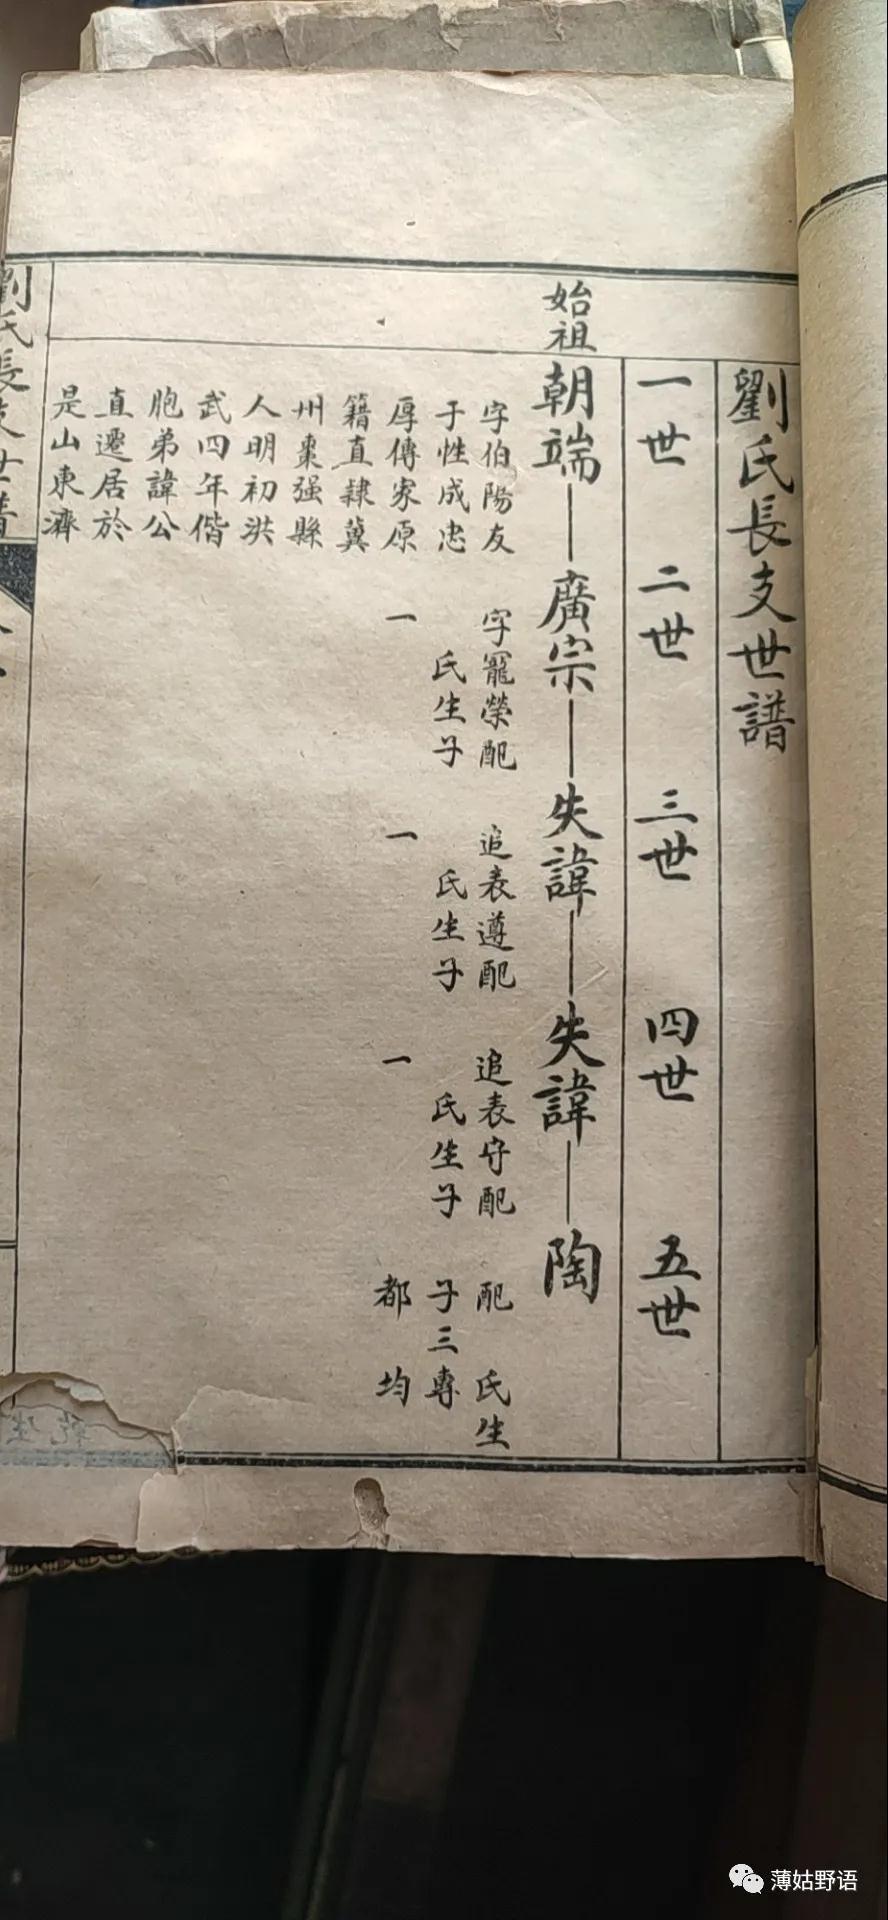 劉氏長支世譜
一世 二世 三世 四世 五世
始祖
朝端—廣宗—失諱—失諱—陶
字伯陽友
于性成忠
厚傳家原
籍直隸冀
州棗强縣
人明初洪
武四年偕
胞弟諱公
直遷居於
是山東濟
字寵榮配
氏生子
一
追表遵配
氏生子
一
追表守配
氏生子
一
配 氏生
子三專
都 均
劉氏長支世譜
薄姑野语